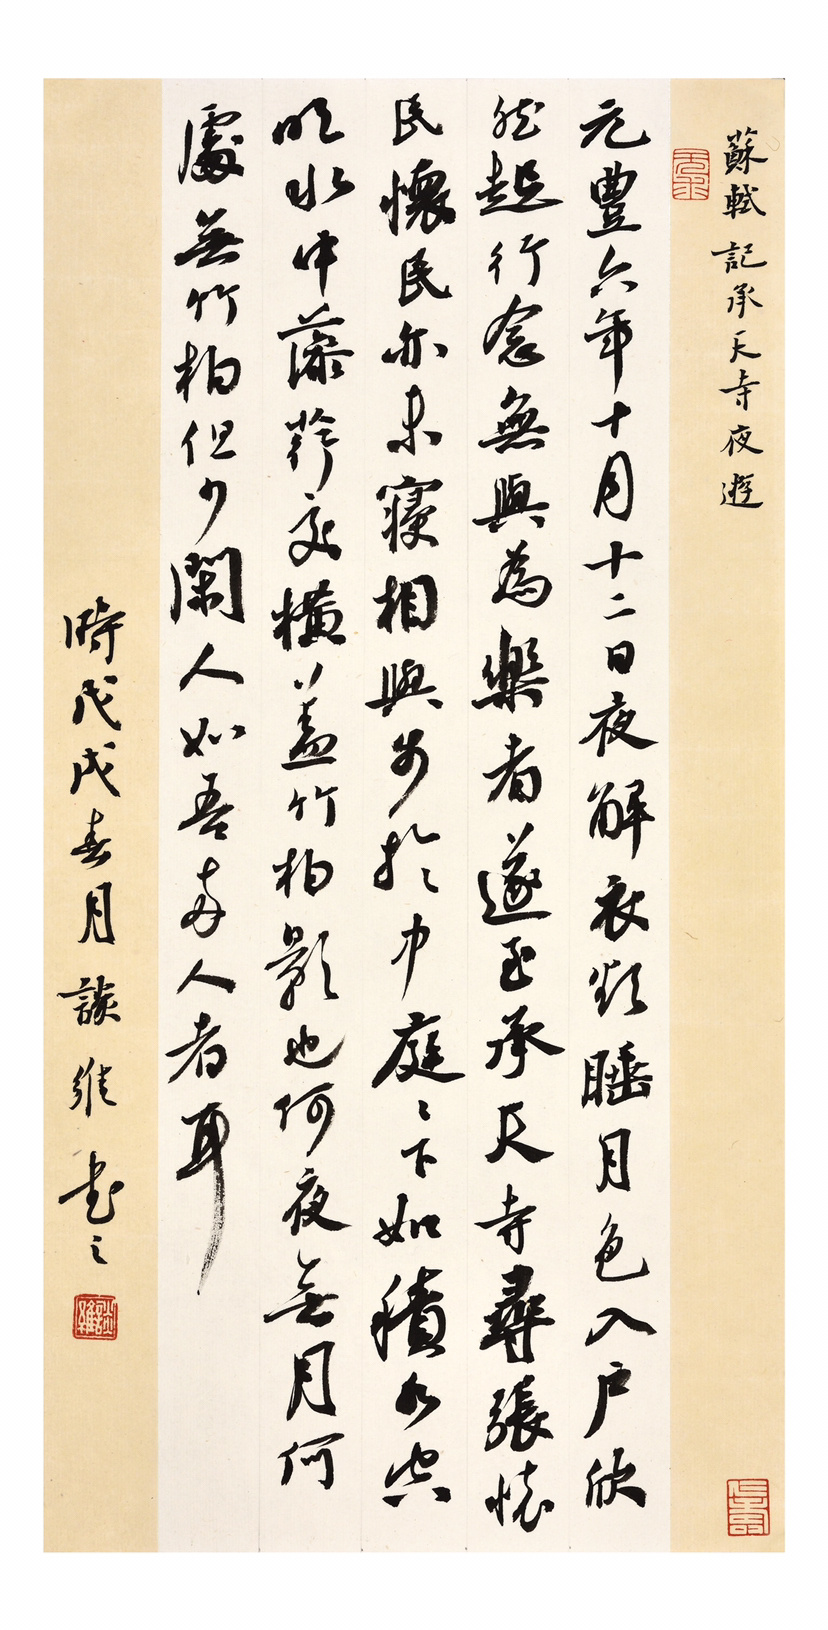 蘇軾記承天寺夜遊
元豐六年十月十二日夜解衣欲睡月色入戶欣
然起行念無與為樂者遂至承天寺尋張懷
民懷民亦未寢相與步於中庭〻下如積水空
明水中藻荇交橫蓋竹柏影也何夜無月何
處無竹柏但少閑人如吾兩人者耳
時戊戌春月談維書之
談維